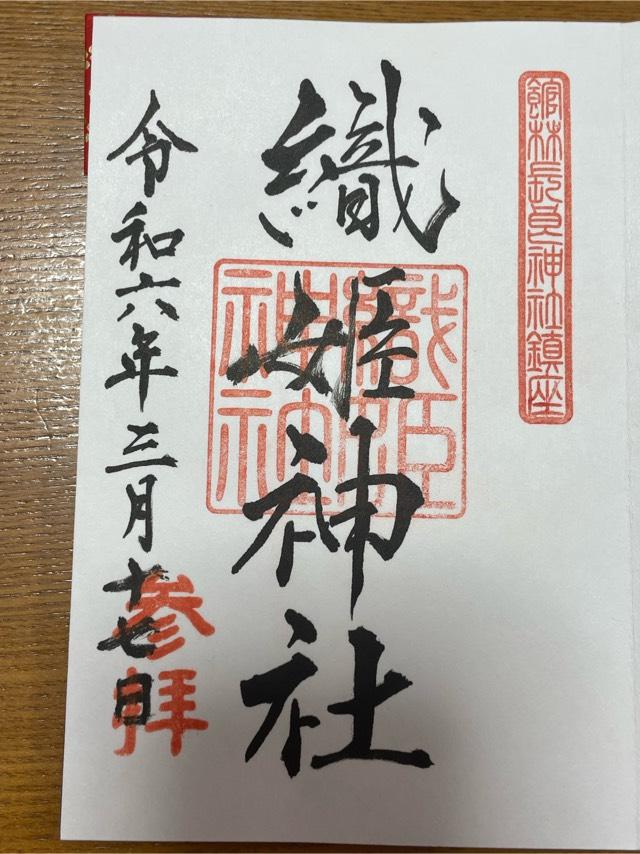 館林長良神社鎮座
織姫神社
織姫
神社
令和六年三月十七日
参拝